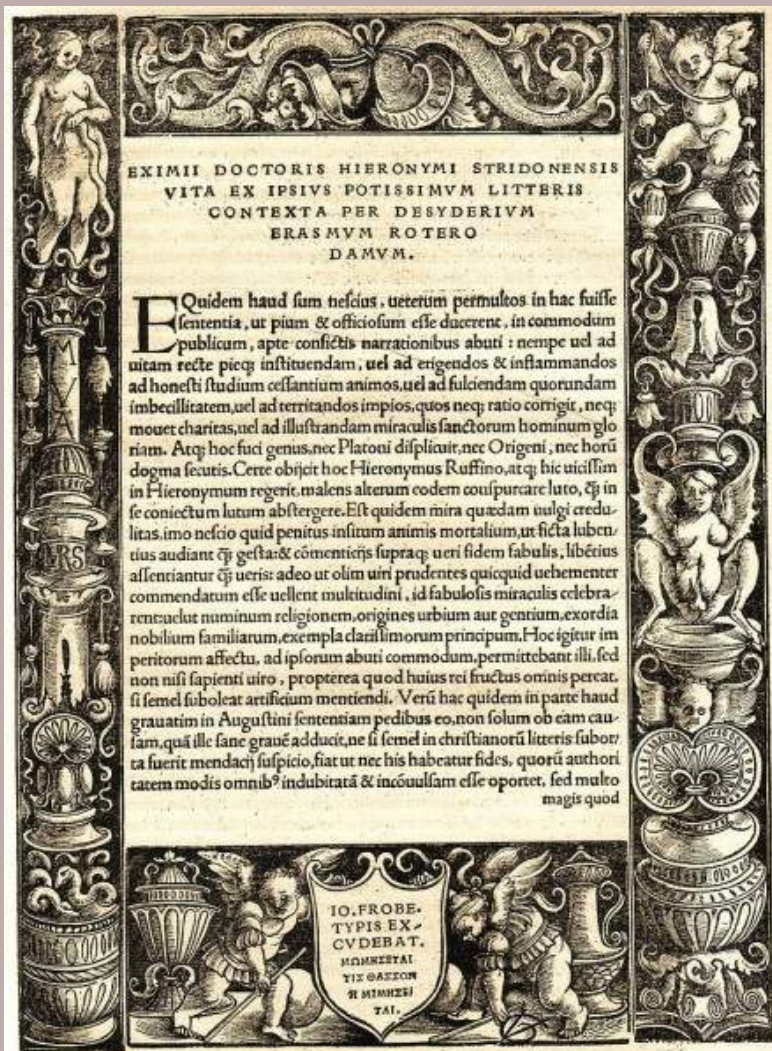 EXIMII DOCTORIS HIERONYMI STRIDONENSIS
VITA EX IPSIVS POTISSIMVM LITTERIS
CONTEXTA PER DESYDERIVM
ERASMVM ROTERO
DAMVM.
EQuidem haud sum nescius, ueterum permultos in hac fuisse
sententia, ut pium & officiosum esse ducerent, in commodum
publicum, apte confictis narrationibus abuti : nempe uel ad
uitam recte pieq; instituendam, uel ad erigendos & inflammandos
ad honesti studium cessantium animos, uel ad fulciendam quorundam
imbecillitatem, uel ad territandos impios, quos neq; ratio corrigit, neq;
mouet charitas, uel ad illustrandam miraculis sanctorum hominum glo
riam. Atq; hoc fuci genus, nec Platoni displicuit, nec Origeni, nec horū
dogma secutis. Certe obijcit hoc Hieronymus Ruffino, atq; hic uicissim
in Hieronymum regerit, malens alterum eodem conspurcare luto, q̄ in
se coniectum lutum abstergere. Est quidem mira quædam uulgi credu-
litas, imo nescio quid penitus insitum animis mortalium, ut ficta luben-
tius audiant q̄ gesta: & cōmenticijs supraq; ueri fidem fabulis, libētius
assentiantur q̄ ueris: adeo ut olim uiri prudentes quicquid uehementer
commendatum esse uellent multitudini, id fabulosis miraculis celebra-
rent: uelut numinum religionem, origines urbium aut gentium, exordia
nobilium familiarum, exempla clarissimorum principum. Hoc igitur im
peritorum affectu, ad ipsorum abuti commodum, permittebant illi, sed
non nisi sapienti uiro, propterea quod huius rei fructus omnis pereat,
si semel suboleat artificium mentiendi. Verū hac quidem in parte haud
grauatim in Augustini sententiam pedibus eo, non solum ob eam cau-
sam, quā ille sane grauē adducit, ne si semel in christianorū litteris subor-
ta fuerit mendacij suspicio, fiat ut nec his habeatur fides, quorū authori
tatem modis omnibꝰ indubitatā & incōuulsam esse oportet, sed multo
magis quod
MVA
VRS
IO. FROBE-
TYPIS EX-
CVDEBAT.
ΜΩΜΗΣΕΤΑΙ
ΤΙΣ ΘΑΣΣΟΝ
Η ΜΙΜΗΣΕΙ
ΤΑΙ.